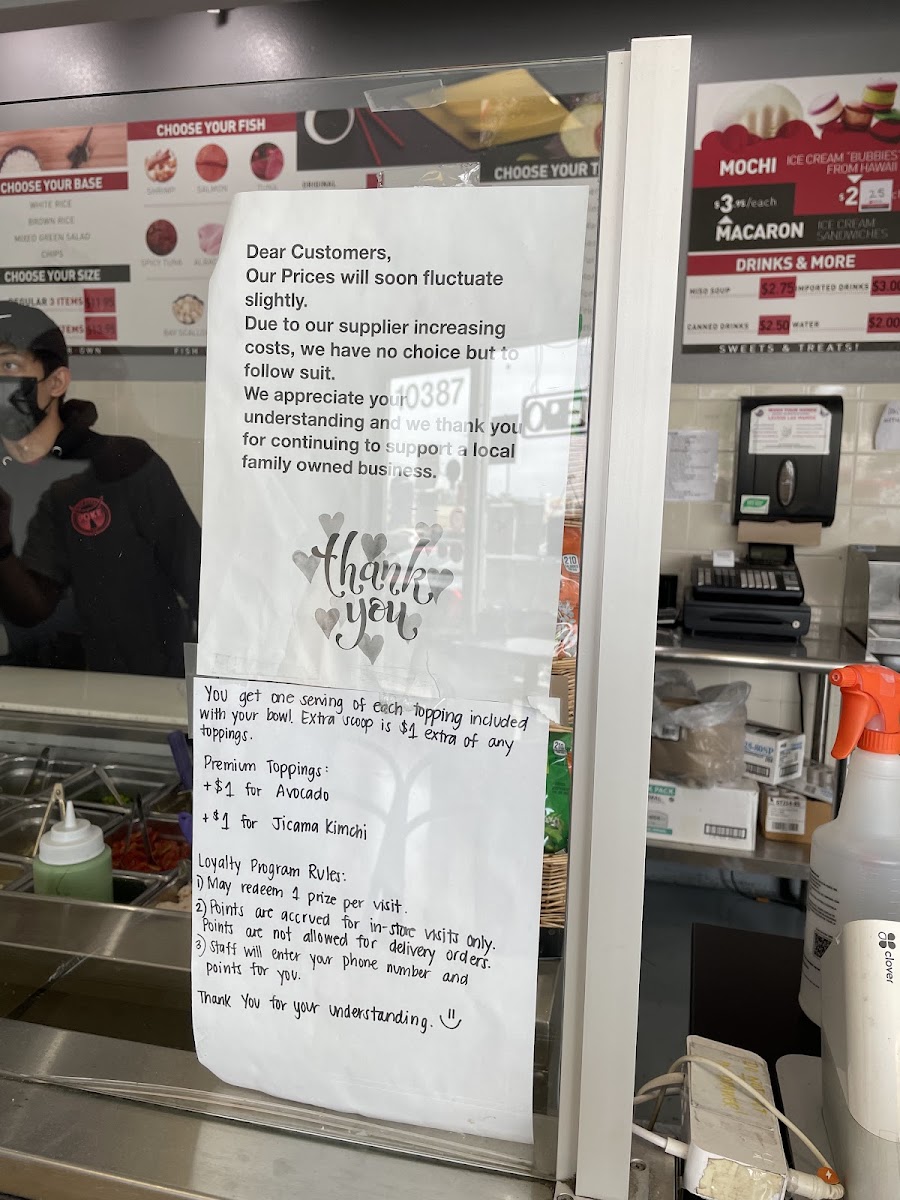 CHOOSE YOUR BASE
WHITE RICE
BROWN RICE
MIXED GREEN SALAD
CHIPS
CHOOSE YOUR SIZE
REGULAR 3 ITEMS $11.95
ITEMS $13.95
CHOOSE YOUR FISH
SHRIMP
SALMON
TUNA
SPICY TUNA
BAY SCALLO
FISH
ORIGINAL
CHOOSE YOUR T
Dear Customers,
Our Prices will soon fluctuate
slightly.
Due to our supplier increasing
costs, we have no choice but to
follow suit.
We appreciate your
understanding and we thank you
for continuing to support a local
family owned business.
10387
OPE
thank
you
You get one serving of each topping included
with your bowl. Extra scoop is $1 extra of any
toppings.
Premium Toppings:
+$1 for Avocado
+$1 for Jicama Kimchi
Loyalty Program Rules:
1) May redeem 1 prize per visit.
2) Points are accrued for in-store visits only.
Points are not allowed for delivery orders.
3) Staff will enter your phone number and
points for you.
Thank You for your understanding.
POKE
MOCHI ICE CREAM "BUBBIES"
FROM HAWAII
$3.95/each
$2 25
MACARON ICE CREAM
SANDWICHES
DRINKS & MORE
MISO SOUP $2.75 IMPORTED DRINKS $3.0
CANNED DRINKS $2.50 WATER $2.00
SWEETS & TREATS!
clover